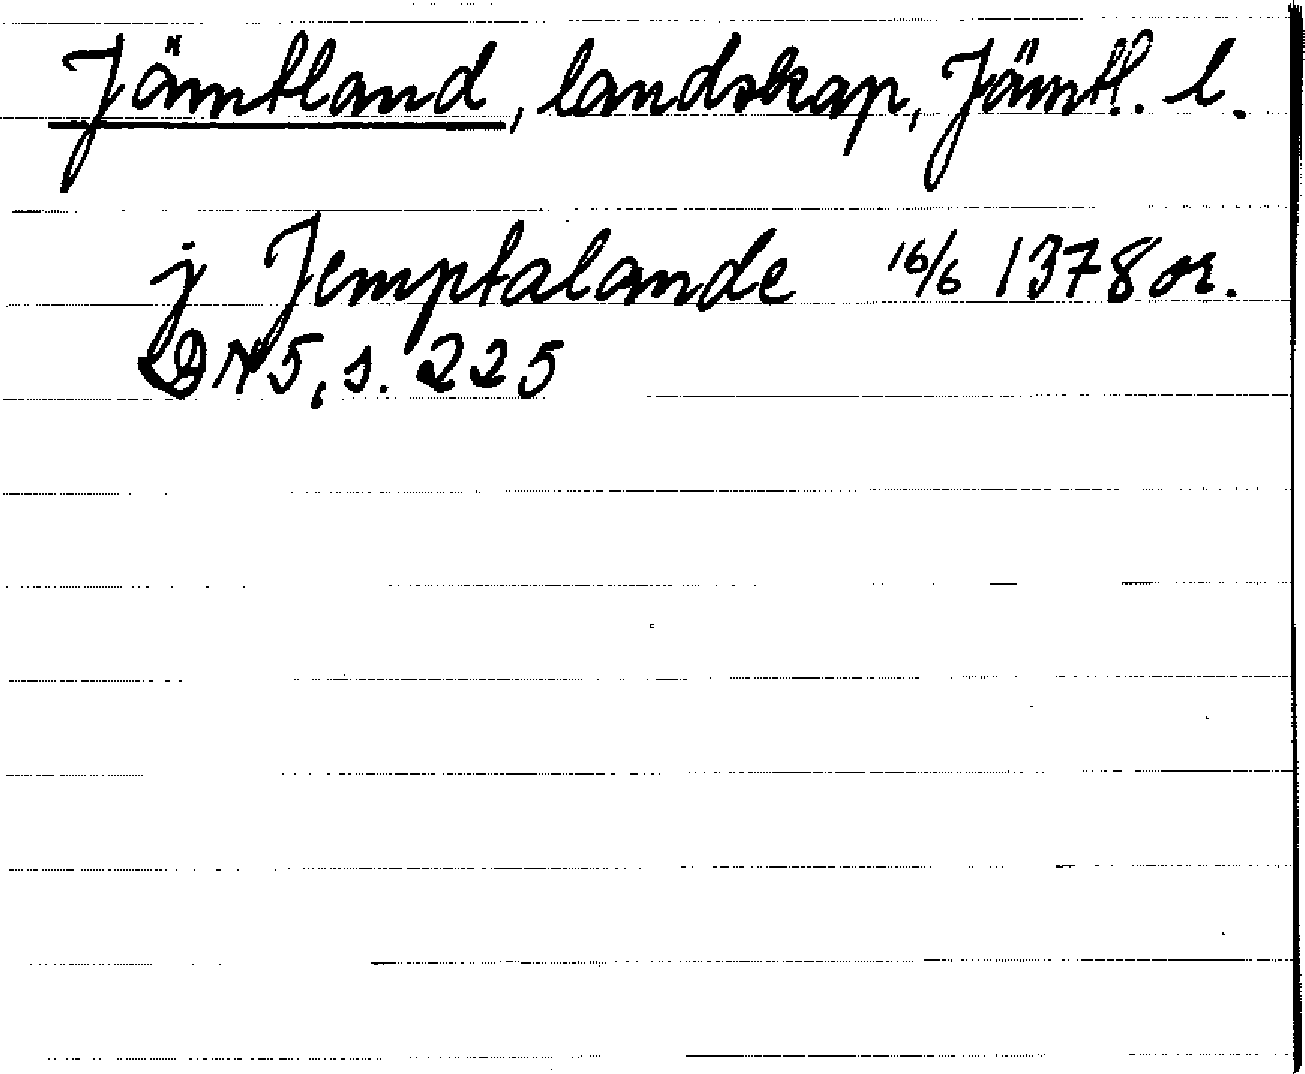 Jämtland, landskap, Jämtl. l.
j Jemptalande 16/6 1378 or.
DN 5, s. 225